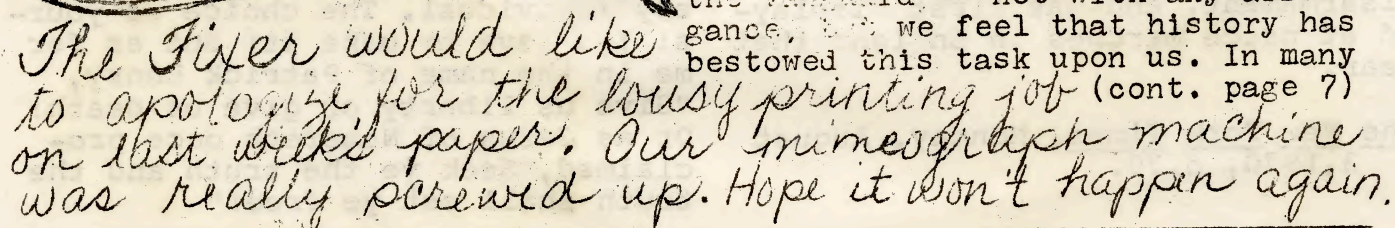 gance, we feel that history has
bestowed this task upon us. In many
(cont. page 7)
The Fixer would like
to apologize for the lousy printing job
on last week's paper. Our mimeograph machine
was really screwed up. Hope it won't happen again.